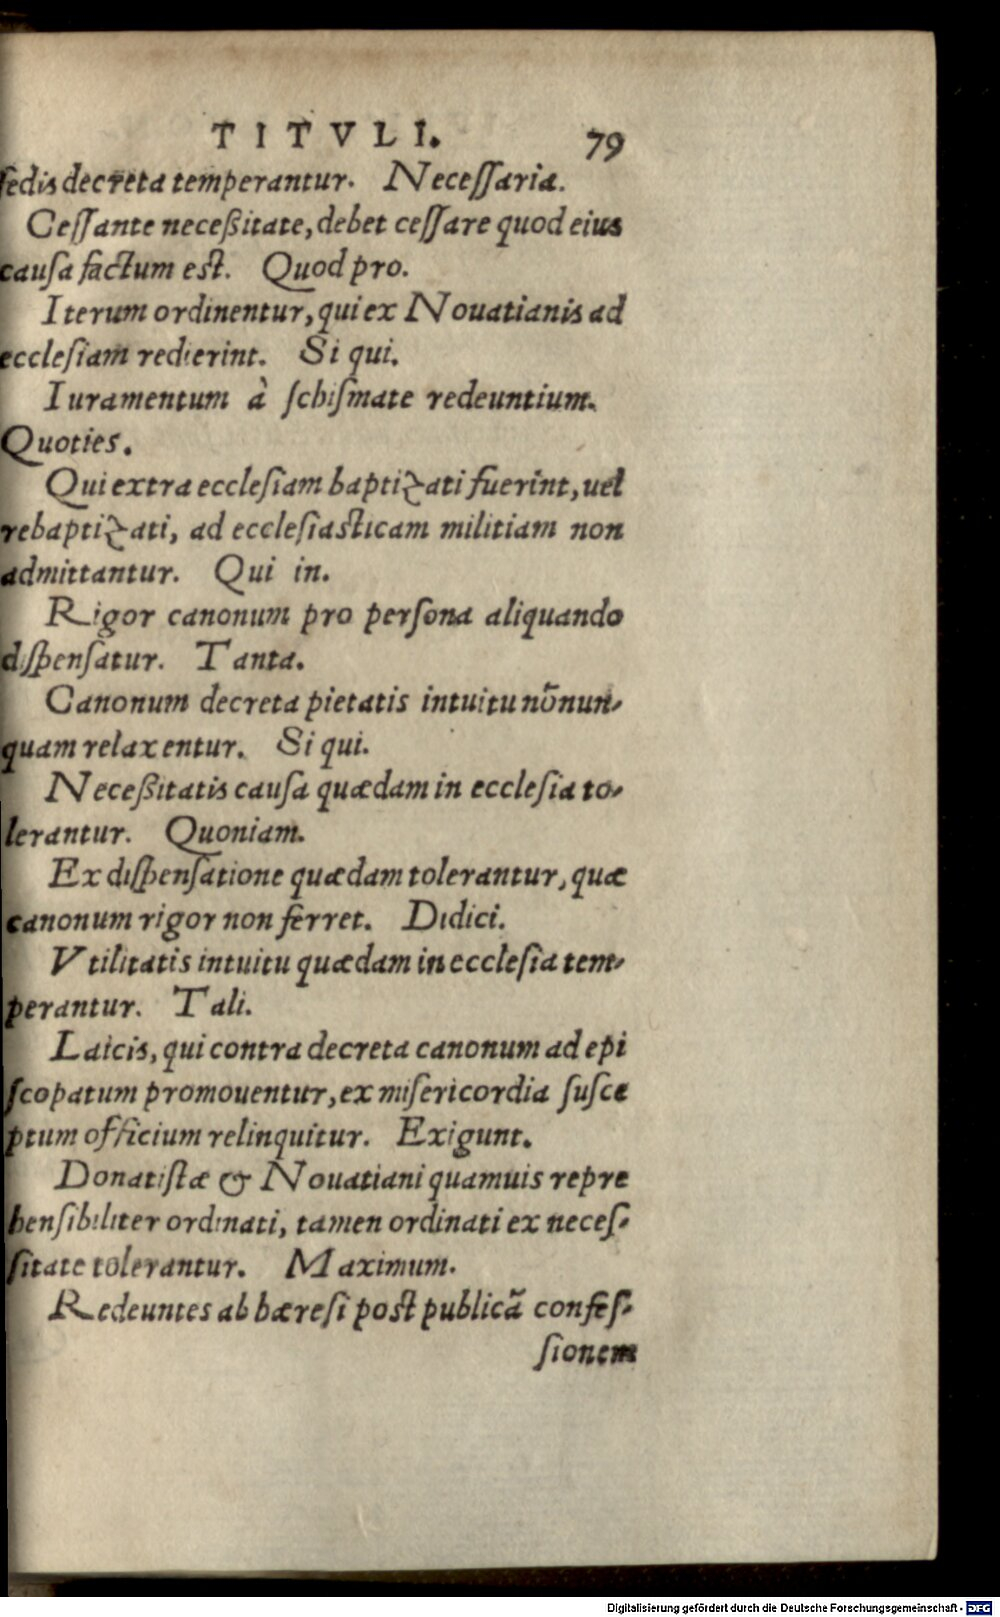 TITVLI. 79
ſedis decreta temperantur. Neceſſaria.
Ceſſante neceßitate, debet ceſſare quod eius
cauſa factum est. Quod pro.
Iterum ordinentur, qui ex Nouatianis ad
eccleſiam redierint. Si qui.
Iuramentum à ſchiſmate redeuntium.
Quoties.
Qui extra eccleſiam baptizati fuerint, uel
rebaptizati, ad eccleſiasticam militiam non
admittantur. Qui in.
Rigor canonum pro perſona aliquando
diſpenſatur. Tanta.
Canonum decreta pietatis intuitu nõnun-
quam relaxentur. Si qui.
Neceßitatis cauſa quædam in eccleſia to-
lerantur. Quoniam.
Ex diſpenſatione quædam tolerantur, quæ
canonum rigor non ferret. Didici.
Vtilitatis intuitu quædam in eccleſia tem-
perantur. Tali.
Laicis, qui contra decreta canonum ad epi
ſcopatum promouentur, ex miſericordia ſuſce
ptum officium relinquitur. Exigunt.
Donatiſtæ & Nouatiani quamuis repre
henſibiliter ordinati, tamen ordinati ex neceſ-
ſitate tolerantur. Maximum.
Redeuntes ab hæreſi post publicã confeſ-
ſionem
Digitalisierung gefördert durch die Deutsche Forschungsgemeinschaft - DFG